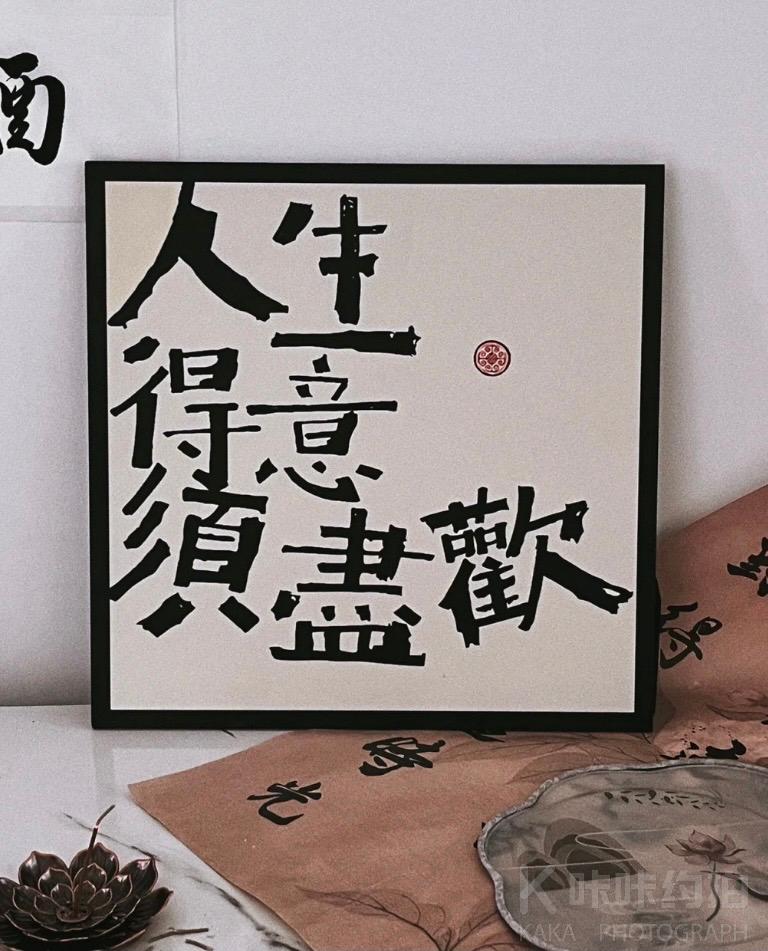 酒
人生
得意
須盡歡
光
K 咔咔约拍
KAKA PHOTOGRAPH